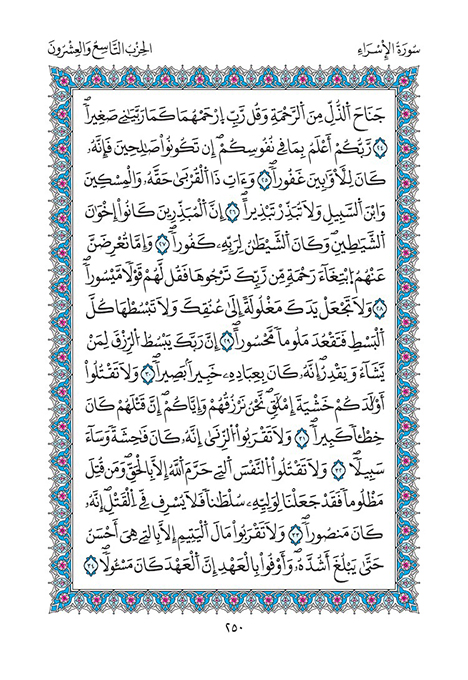 سُورَةُ الإِسْرَاءِ
الحِزْبُ التَّاسِعُ وَالعِشْرُونَ
جَنَاحَ اَ۬لذُّلِّ مِنَ اَ۬لرَّحْمَةِ وَقُل رَّبِّ اِ۪رْحَمْهُمَا كَمَا رَبَّيَٰنِے صَغِيراٗۖ
٢٤ رَّبُّكُمُۥٓ أَعْلَمُ بِمَا فِے نُفُوسِكُمُۥٓۖ إِن تَكُونُواْ صَٰلِحِينَ فَإِنَّهُۥ
كَانَ لِلَأوَّٰبِينَ غَفُوراٗۖ ٢٥ وَءَاتِ ذَا اَ۬لْقُرْب۪ىٰ حَقَّهُۥ وَالْمِسْكِينَ
وَابْنَ اَ۬لسَّبِيلِ وَلَا تُبَذِّرْ تَبْذِيراًۖ ٢٦ اِنَّ اَ۬لْمُبَذِّرِينَ كَانُوٓاْ إِخْوَٰنَ
اَ۬لشَّيَٰطِينِۖ وَكَانَ اَ۬لشَّيْطَٰنُ لِرَبِّهِۦ كَفُوراٗۖ ٢٧ وَإِمَّا تُعْرِضَنَّ
عَنْهُمُ اُ۪بْتِغَآءَ رَحْمَةٖ مِّن رَّبِّكَ تَرْجُوهَا فَقُل لَّهُمْ قَوْلاٗ مَّيْسُوراٗۖ
٢٨ وَلَا تَجْعَلْ يَدَكَ مَغْلُولَةً اِلَىٰ عُنُقِكَ وَلَا تَبْسُطْهَا كُلَّ
اَ۬لْبَسْطِ فَتَقْعُدَ مَلُوماٗ مَّحْسُوراًۖ ٢٩ اِنَّ رَبَّكَ يَبْسُطُ اُ۬لرِّزْقَ لِمَنْ
يَّشَآءُ وَيَقْدِرُۖ إِنَّهُۥ كَانَ بِعِبَادِهِۦ خَبِيراَۢ بَصِيراٗۖ ٣٠ وَلَا تَقْتُلُوٓاْ
أَوْلَٰدَكُمْ خَشْيَةَ إِمْلَٰقٖۖ نَّحْنُ نَرْزُقُهُمْ وَإِيَّاكُمُۥٓۖ إِنَّ قَتْلَهُمْ كَانَ
خِطْـٔاٗ كَبِيراٗۖ ٣١ وَلَا تَقْرَبُواْ اُ۬لزِّن۪ىٰٓ إِنَّهُۥ كَانَ فَٰحِشَةٗ وَسَآءَ
سَبِيلاٗۖ ٣٢ وَلَا تَقْتُلُواْ اُ۬لنَّفْسَ اَ۬لتِے حَرَّمَ اَ۬للَّهُ إِلَّا بِالْحَقِّۖ وَمَن قُتِلَ
مَظْلُوماٗ فَقَدْ جَعَلْنَا لِوَلِيِّهِۦ سُلْطَٰناٗ فَلَا يُسْرِف فِّے اِ۬لْقَتْلِۖ إِنَّهُۥ
كَانَ مَنصُوراٗۖ ٣٣ وَلَا تَقْرَبُواْ مَالَ اَ۬لْيَتِيمِ إِلَّا بِالتِے هِيَ أَحْسَنُ
حَتَّىٰ يَبْلُغَ أَشُدَّهُۥۖ وَأَوْفُواْ بِالْعَهْدِ إِنَّ اَ۬لْعَهْدَ كَانَ مَسْـُٔولاٗۖ ٣٤
٢٥٠